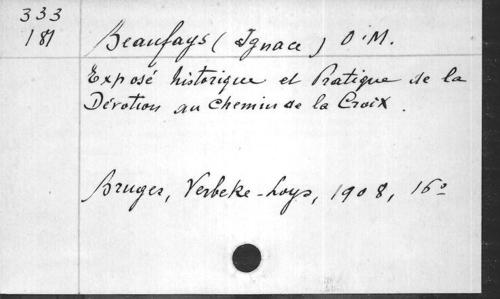 333
181
Beaufays (Ignace) O.M.
Exposé historique et Pratique de la
Dévotion au Chemin de la Croix.
Bruges, Verbeke-Loys, 1908, 16o